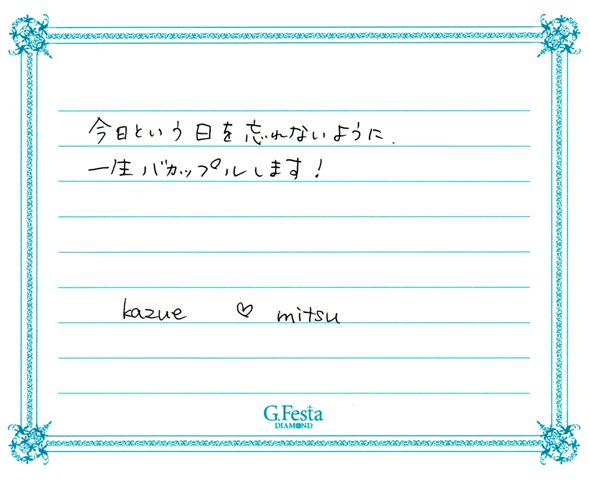 今日という日を忘れないように.
一生バカップルします!
kazue ♡ mitsu
G.Festa
DIAMOND